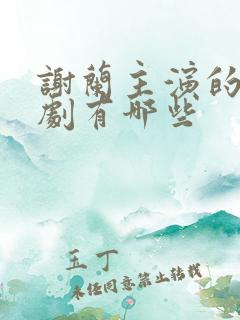 謝蘭主演的
劇有哪些
玉丁
未经同意禁止转载